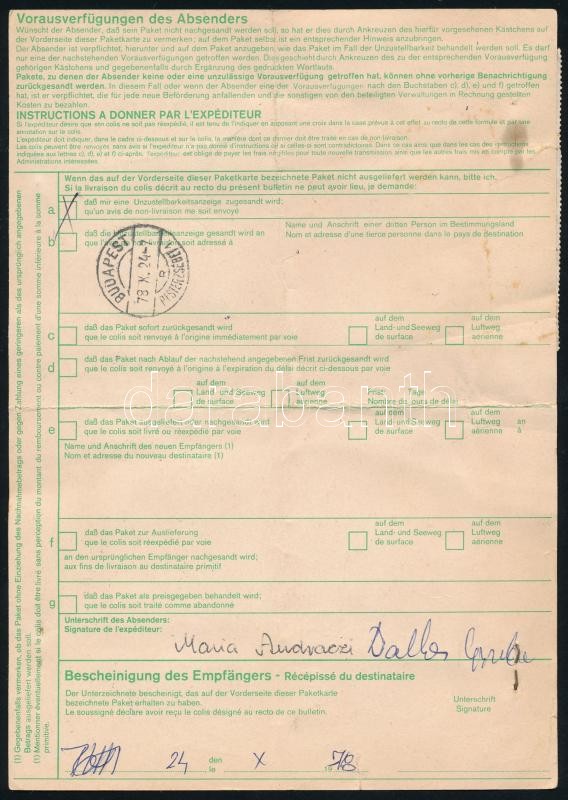 Vorausverfügungen des Absenders
Wünscht der Absender, daß sein Paket nicht nachgesandt werden soll, so hat er dies durch Ankreuzen des hierfür vorgesehenen Kästchens auf
der Vorderseite dieser Paketkarte zu vermerken; auf dem Paket selbst ist ein entsprechender Hinweis anzubringen.
Der Absender ist verpflichtet, hierunter und auf dem Paket anzugeben, wie das Paket im Fall der Unzustellbarkeit behandelt werden soll. Es darf
nur eine der nachstehenden Vorausverfügungen getroffen werden. Dies geschieht durch Ankreuzen des zu der entsprechenden Vorausverfügung
gehörigen Kästchens und gegebenenfalls durch Ergänzung des gedruckten Wortlauts.
Pakete, zu denen der Absender keine oder eine unzulässige Vorausverfügung getroffen hat, können ohne vorherige Benachrichtigung
zurückgesandt werden. In diesem Fall oder wenn der Absender eine der Vorausverfügungen nach den Buchstaben c), d), e) und f) getroffen
hat, ist er verpflichtet, die für jede neue Beförderung anfallenden und die sonstigen von den beteiligten Verwaltungen in Rechnung gestellten
Kosten zu bezahlen.
INSTRUCTIONS A DONNER PAR L'EXPÉDITEUR
Si l'expéditeur désire que son colis ne soit pas réexpédié, il est tenu de l'indiquer en apposant une croix dans la case prévue à cet effet au recto de cette formule et par une
annotation sur le colis.
L'expéditeur doit indiquer, dans le cadre ci-dessous et sur le colis, la manière dont ce dernier doit être traité en cas de non-livraison.
Les colis peuvent être renvoyés sans avis si l'expéditeur n'a pas donné d'instructions ou si celles-ci sont contradictoires. Dans ce cas ainsi que dans les cas des instructions
indiquées aux lettres c), d), e) et f) ci-après, l'expéditeur est obligé de payer les frais exigibles pour toute nouvelle transmission ainsi que les autres frais mis en compte par les
Administrations intéressées.
Wenn das auf der Vorderseite dieser Paketkarte bezeichnete Paket nicht ausgeliefert werden kann, bitte ich,
Si la livraison du colis décrit au recto du présent bulletin ne peut avoir lieu, je demande:
a X daß mir eine Unzustellbarkeitsanzeige zugesandt wird;
qu'un avis de non-livraison me soit envoyé
b daß die Unzustellbarkeitsanzeige gesandt wird an
que l'avis de non-livraison soit adressé à
Name und Anschrift einer dritten Person im Bestimmungsland
Nom et adresse d'une tierce personne dans le pays de destination
BUDAPEST
78 X. 24-
c daß das Paket sofort zurückgesandt wird
que le colis soit renvoyé à l'origine immédiatement par voie
auf dem
Land- und Seeweg
de surface
auf dem
Luftweg
aérienne
d daß das Paket nach Ablauf der nachstehend angegebenen Frist zurückgesandt wird
que le colis soit renvoyé à l'origine à l'expiration du délai décrit ci-dessous par voie
auf dem
Land- und Seeweg
de surface
auf dem
Luftweg
aérienne
Frist: Tage
Nombre de jours de délai
darabanth
e daß das Paket ausgeliefert oder nachgesandt wird
que le colis soit livré ou réexpédié par voie
auf dem
Land- und Seeweg
de surface
auf dem
Luftweg
aérienne
an
à
Name und Anschrift des neuen Empfängers (1)
Nom et adresse du nouveau destinataire (1)
f daß das Paket zur Auslieferung
que le colis soit réexpédié par voie
auf dem
Land- und Seeweg
de surface
auf dem
Luftweg
aérienne
an den ursprünglichen Empfänger nachgesandt wird;
aux fins de livraison au destinataire primitif
g daß das Paket als preisgegeben behandelt wird;
que le colis soit traité comme abandonné
Unterschrift des Absenders:
Signature de l'expéditeur:
Maria
Bescheinigung des Empfängers - Récépissé du destinataire
Der Unterzeichnete bescheinigt, das auf der Vorderseite dieser Paketkarte
bezeichnete Paket erhalten zu haben.
Le soussigné déclare avoir reçu le colis désigné au recto de ce bulletin.
Unterschrift
Signature
24 den
le X 1978
(1) Gegebenenfalls vermerken, ob das Paket ohne Einziehung des Nachnahmebetrags oder gegen Zahlung eines geringeren als des ursprünglich angegebenen
Betrags ausgeliefert werden soll.
(1) Mentionner éventuellement si le colis doit être livré sans perception du montant du remboursement ou contre paiement d'une somme inférieure à la somme
primitive.